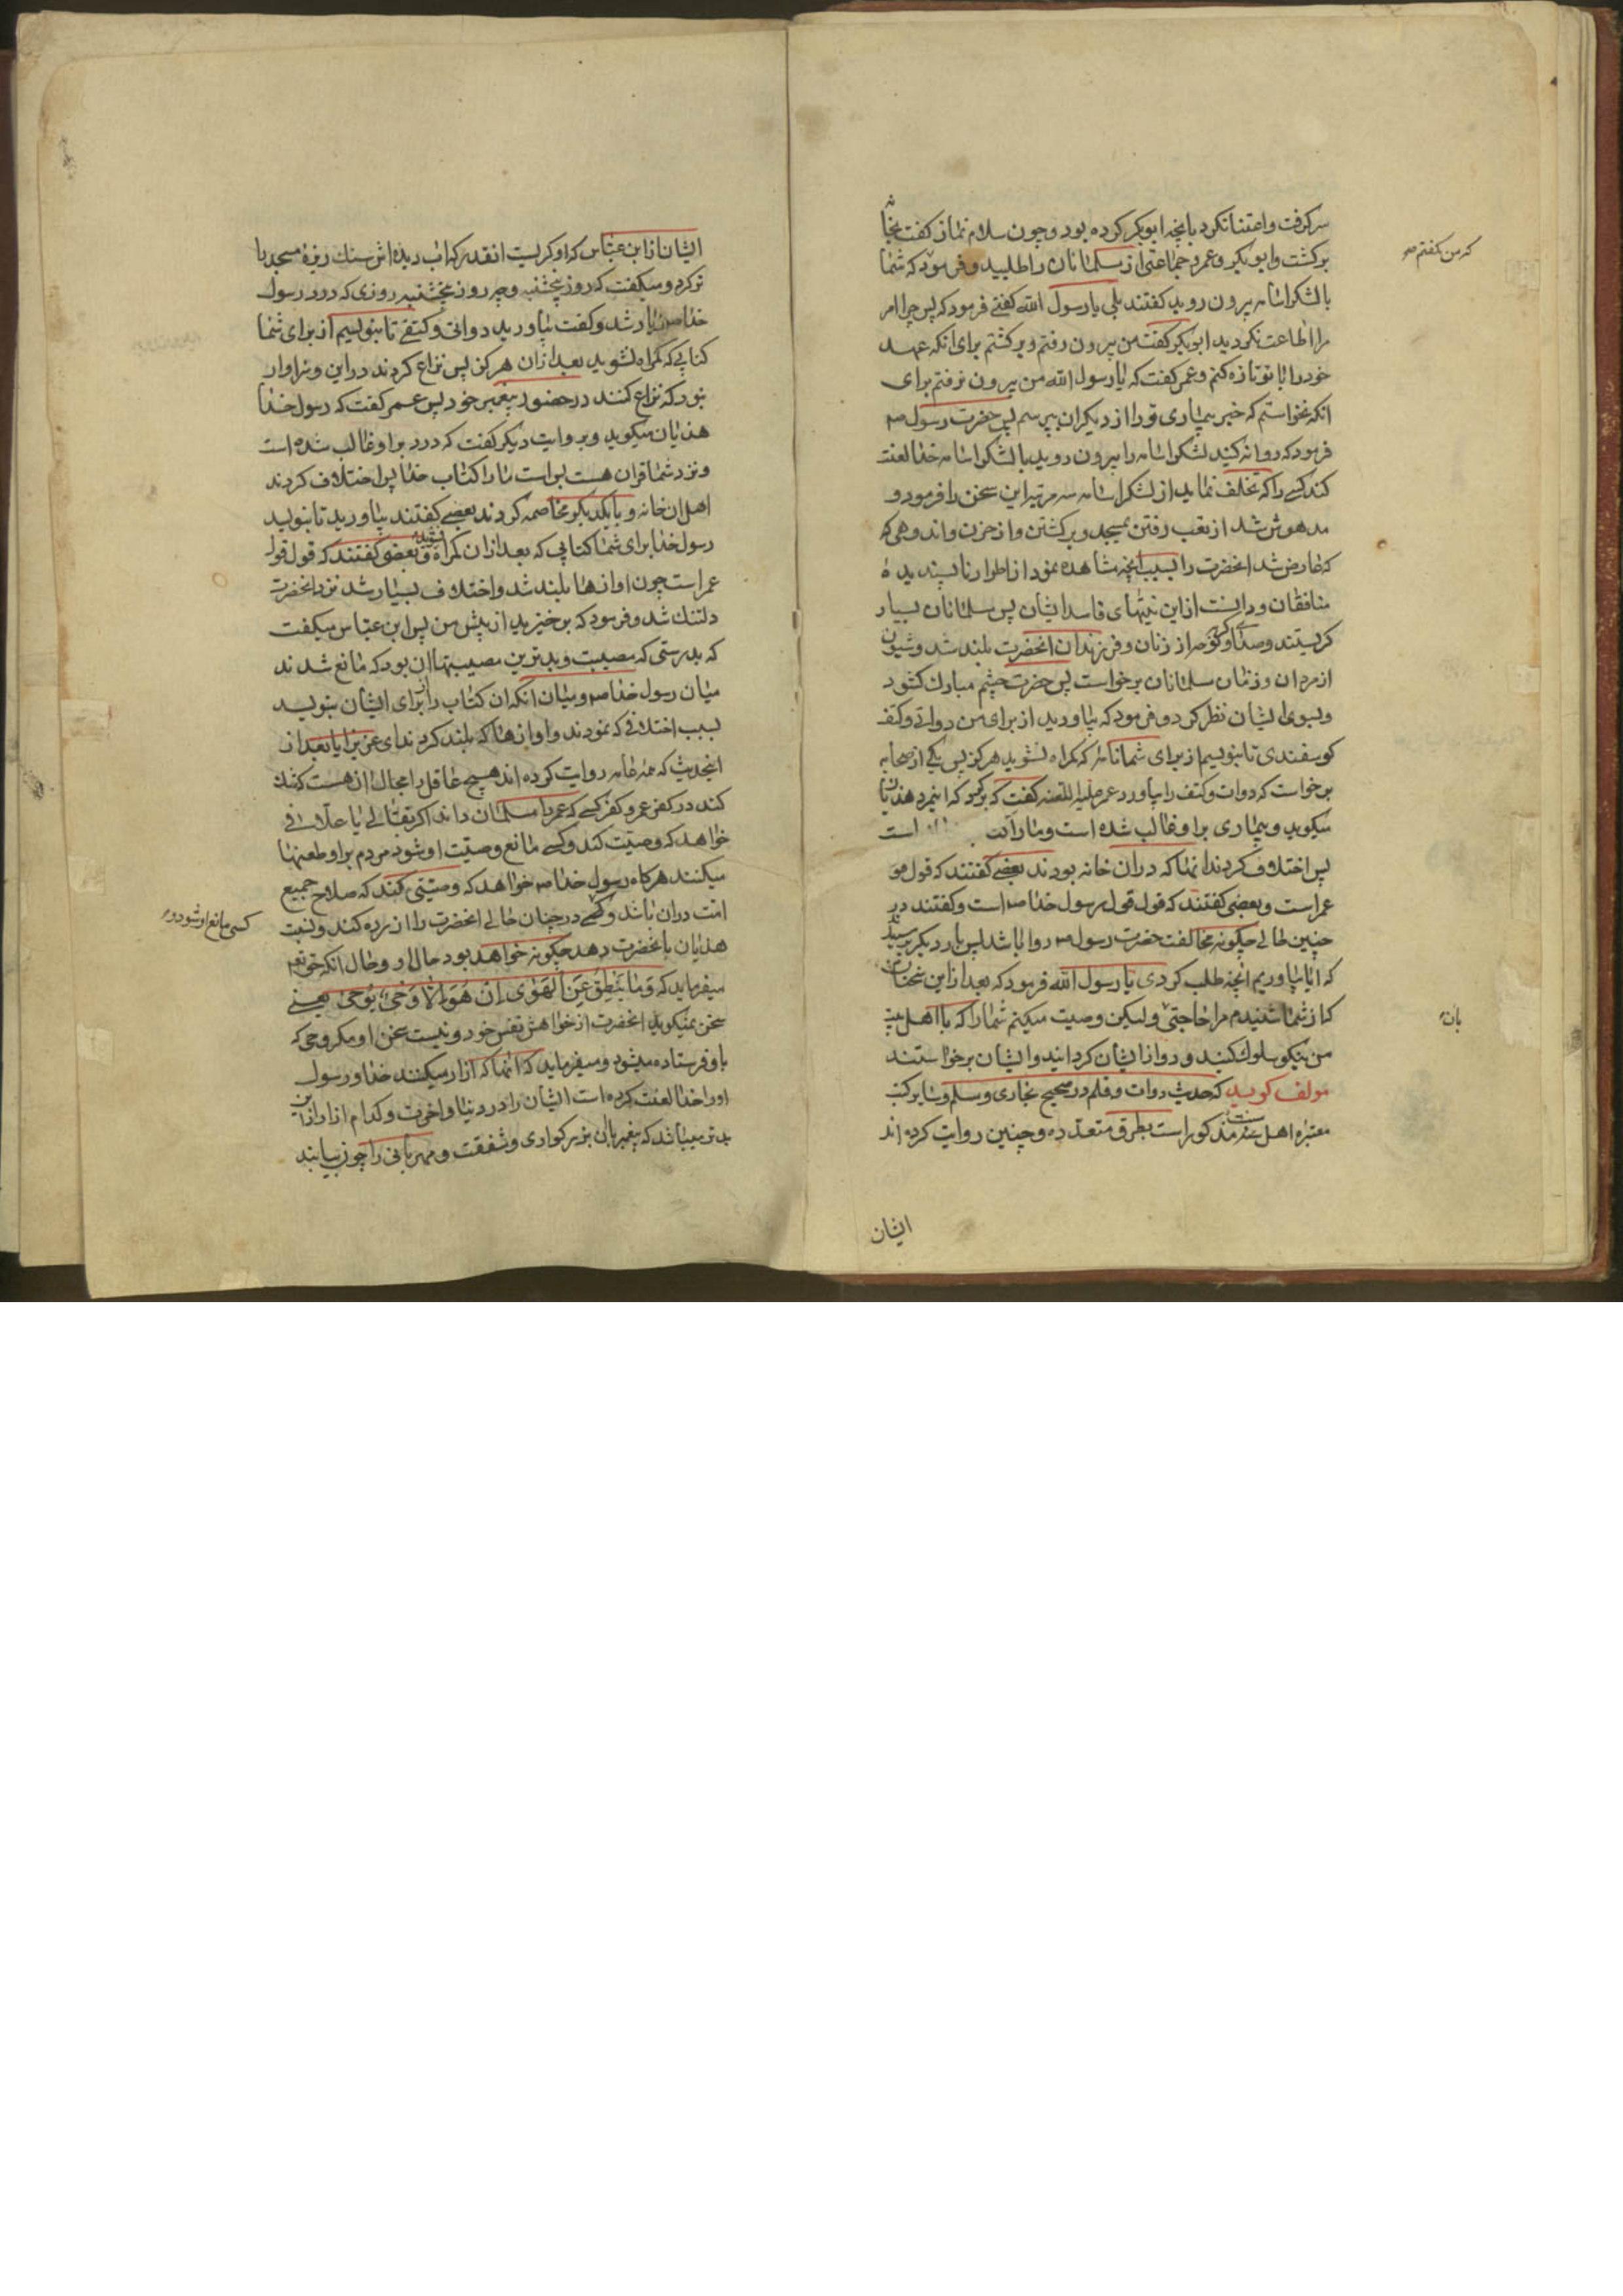 سر گرفت و اعتنا نکرد بانچه ابو بکر کرده بود و چون سلام نماز گفت بخانه
برکشت و ابو بکر و عمر و جماعتی از مسلمانان را طلبید و فرمود که شما
که من نکفتم صر
با لشکر اسامه بیرون روید کفتند بلی یا رسول الله کفتی فرمود که پس چرا امر
مرا اطاعت نکردید ابو بکر کفت من بیرون رفتم و برکشتم برای انکه عهد
خود را با تو تازه کنم و عمر کفت که یا رسول الله من بیرون نرفتم برای
انکه نخواستم که خبر بیماری تو را از دیکران بپرسم پس حضرت رسول ص
فرمود که روانه کنید لشکر اسامه را بیرون روید با لشکر اسامه خدا لعنت
کند کسے را که تخلف نماید از لشکر اسامه سه مرتبه این سخن را فرمود و
مدهوش شد از تعب رفتن بمسجد و برکشتن و از حزن و اندوهی که
که عارض شد انحضرت را بسبب انچه مشاهده نمود از اطوار ناپسندیده
منافقان و دانست از این نیتهای فاسد ایشان پس مسلمانان بسیار
کریستند و صدای کریه از زنان و فرزندان انحضرت بلند شد و شیون
از مردان و زنان مسلمانان برخواست پس حضرت چشم مبارک کشود
و بسوی ایشان نظر کرد و فرمود که بیاورید از برای من دواتے و کتف
کوسفندی تا بنویسم از برای شما نامه که کمراه نشوید هرکز پس یکی از صحابه
برخواست که دوات و کتف را بیاورد عمر علیه اللعنه کفت که برکرد که این مرد هذیان
میکوید و بیماری بر او غالب شده است و ما را کتاب است
پس اختلاف کردند انها که در ان خانه بودند بعضے کفتند که قول قول
عمر است و بعضی کفتند که قول قول رسول خدا ص است و کفتند در
چنین حالے چکونه مخالفت حضرت رسول ص روا باشد پس بار دیکر پرسیدند
که ایا بیاوریم انچه طلب کردی یا رسول الله فرمود که بعد از این سخنان
که از شما شنیدم مرا حاجتی ولیکن وصیت میکنم شما را که با اهل بیت
بان
من نیکو سلوک کنید و رو از ایشان کردانید و ایشان برخواستند
مولف کوید که حدیث دوات و قلم در صحیح بخاری و مسلم و سایر کتب
معتبره اهل سنت مذکور است بطرق متعدده و چنین روایت کرده اند
ایشان
ایشان از ابن عباس که او کریست انقدر که اب دیده اش سنک ریزه مسجد را
تر کرد و میکفت که روز پنجشنبه و چه روز پنجشنبه روزی که درد رسول
خدا ص شد و کفت بیاورید دواتی و کتفے تا بنویسم از برای شما
کتابی که کمراه نشوید بعد از ان هرکز پس نزاع کردند در این و سزاوار
نبود که نزاع کنند در حضور پیغمبر خود پس عمر کفت که رسول خدا
هذیان میکوید و بروایت دیکر کفت که درد بر او غالب شده است
و نزد شما قران هست بس است ما را کتاب خدا پس اختلاف کردند
اهل ان خانه و با یکدیکر مخاصمه کردند بعضے کفتند بیاورید تا بنویسد
رسول خدا برای شما کتابی که بعد از ان کمراه نشوید و بعضی کفتند که قول قول
عمر است چون اوازها بلند شد و اختلاف بسیار شد نزد انحضرت
دلتنک شد و فرمود که برخیزید از پیش من پس ابن عباس میکفت
که بدرستی که مصیبت و بدترین مصیبتها ان بود که مانع شدند
میان رسول خدا ص و میان انکه ان کتاب را از برای ایشان بنویسد
بسبب اختلافی که نمودند و اوازها که بلند کردند ای عزیز ایا بعد از
اینحدیث که همه عامه روایت کرده اند هیچ عاقل را مجال ان هست که شک
کند در کفر عمر و کفر کسے که عمر را مسلمان داند اکر بقالے یا علافی
خواهد که وصیت کند و کسے مانع وصیت او شود مردم بر او طعنها
میکنند هرکاه رسول خدا ص خواهد که وصیتی کند که صلاح جمیع
امت در ان باشد و کسے در چنان حالے انحضرت را ازرده کند و نسبت
کسی مانع او شود و
هذیان بانحضرت دهد چکونه خواهد بود حال او و حال انکه حق تعم
میفرماید که وَمَا يَنْطِقُ عَنِ الْهَوٰى اِنْ هُوَ اِلَّا وَحْىٌ يُوحٰى یعنے
سخن نمیکوید انحضرت از خواهش نفس خود و نیست سخن او مکر وحی که
باو فرستاده میشود و میفرماید که انها که ازار میکنند خدا و رسول
او را خدا لعنت کرده است ایشان را در دنیا و اخرت و کدام ازار از این
بدتر میباشد که پیغمبر بان بزرکواری و شفقت و مهربانی را چون بیابند